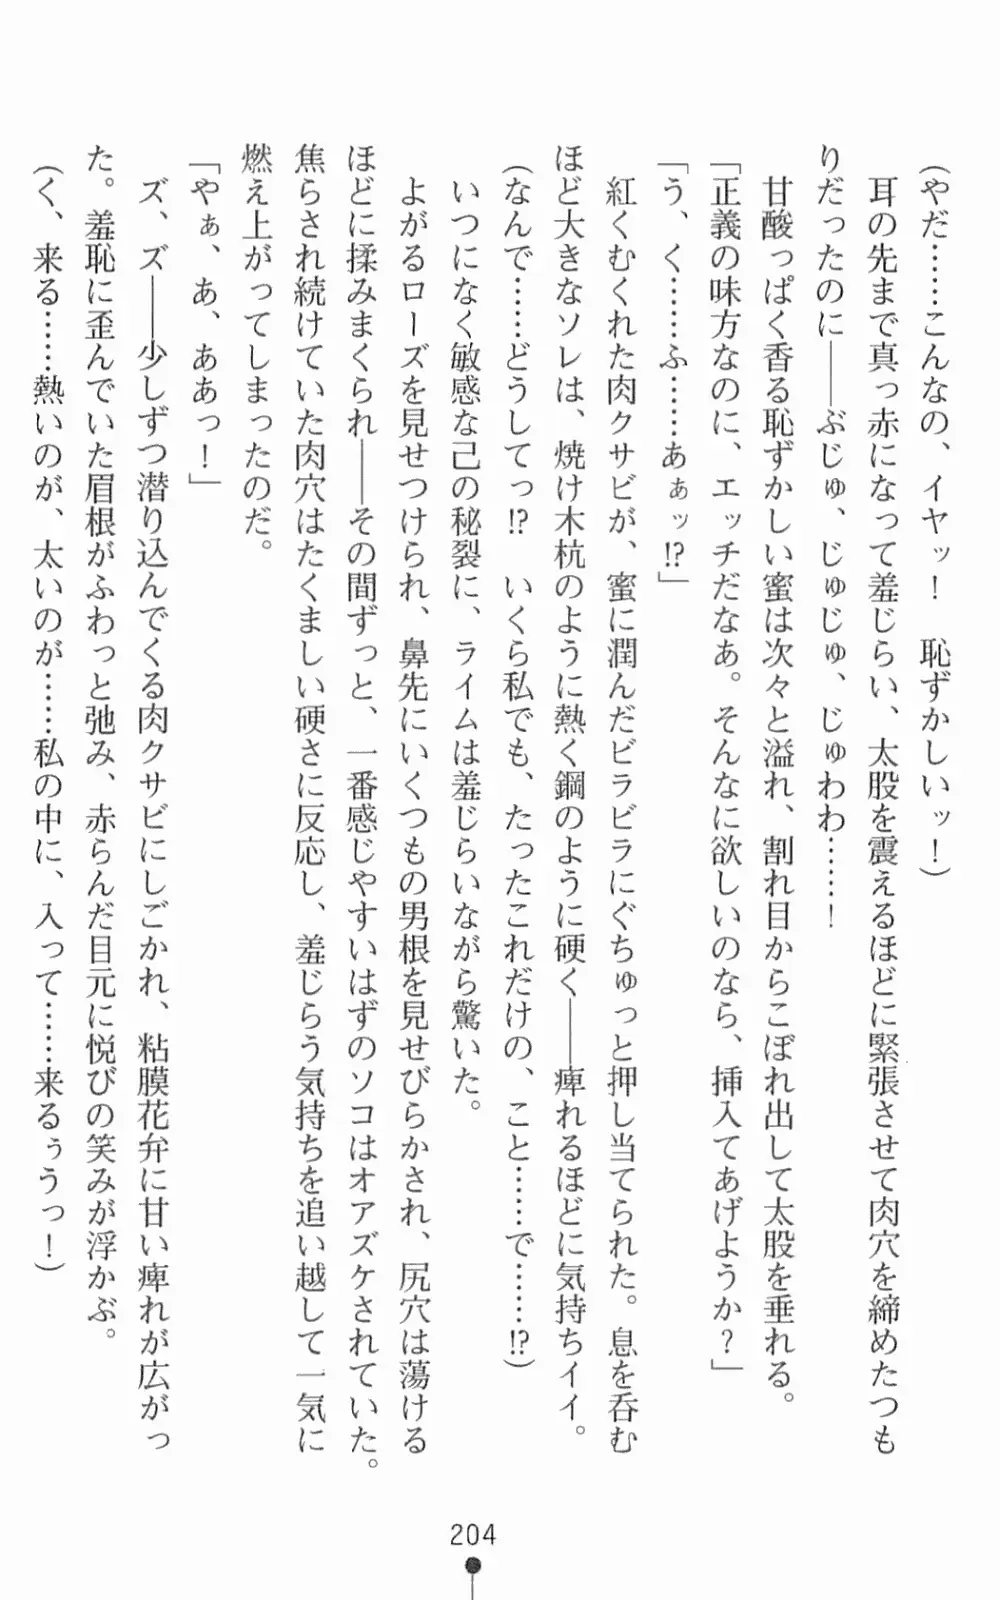 (やだ……こんなの、イヤッ！　恥ずかしいッ！)
耳の先まで真っ赤になって羞じらい、太股を震えるほどに緊張させて肉穴を締めたつも
りだったのに――ぶじゅ、じゅじゅ、じゅわわ……！
甘酸っぱく香る恥ずかしい蜜は次々と溢れ、割れ目からこぼれ出して太股を垂れる。
「正義の味方なのに、エッチだなぁ。そんなに欲しいのなら、挿入てあげようか？」
「う、く……ふ……あぁッ!?」
紅くむくれた肉クサビが、蜜に潤んだビラビラにぐちゅっと押し当てられた。息を呑む
ほど大きなソレは、焼け木杭のように熱く鋼のように硬く――痺れるほどに気持ちイイ。
(なんで……どうしてっ!?　いくら私でも、たったこれだけの、こと……で……!?)
いつになく敏感な己の秘裂に、ライムは羞じらいながら驚いた。
よがるローズを見せつけられ、鼻先にいくつもの男根を見せびらかされ、尻穴は蕩ける
ほどに揉みまくられ――その間ずっと、一番感じやすいはずのソコはオアズケされていた。
焦らされ続けていた肉穴はたくましい硬さに反応し、羞じらう気持ちを追い越して一気に
燃え上がってしまったのだ。
「やぁ、あ、ああっ！」
ズ、ズ――少しずつ潜り込んでくる肉クサビにしごかれ、粘膜花弁に甘い痺れが広がっ
た。羞恥に歪んでいた眉根がふわっと弛み、赤らんだ目元に悦びの笑みが浮かぶ。
(く、来る……熱いのが、太いのが……私の中に、入って……来るぅうっ！)
204